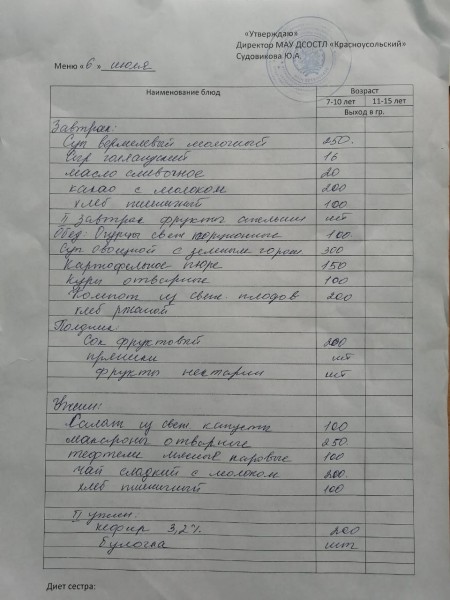 «Утверждаю»
Директор МАУ ДСОСТЛ «Красноусольский»
Судовикова Ю.А.
Меню «6» июля
Наименование блюд Возраст
7-10 лет 11-15 лет
Выход в гр.
Завтрак:
Суп вермелевый молочный 250.
Сыр голландский 16
масло сливочное 20
какао с молоком 200
хлеб пшеничный 100
II Завтрак фрукты апельсин шт
Обед: Огурцы свеж порционные 100.
Суп овощной с зеленым горош 300
Картофельное пюре 150
Куры отварные 100
Компот из свеж. плодов 200
хлеб ржаной
Полдник
Сок фруктовый 200
пряники шт
фрукты нектарин шт
Ужин:
Салат из свеж капусты 100
макароны отварные 250.
тефтели мясные паровые 100
Чай сладкий с молоком 200.
хлеб пшеничный 100
II ужин:
кефир 3,2% 200
булочка шт.
Диет сестра: